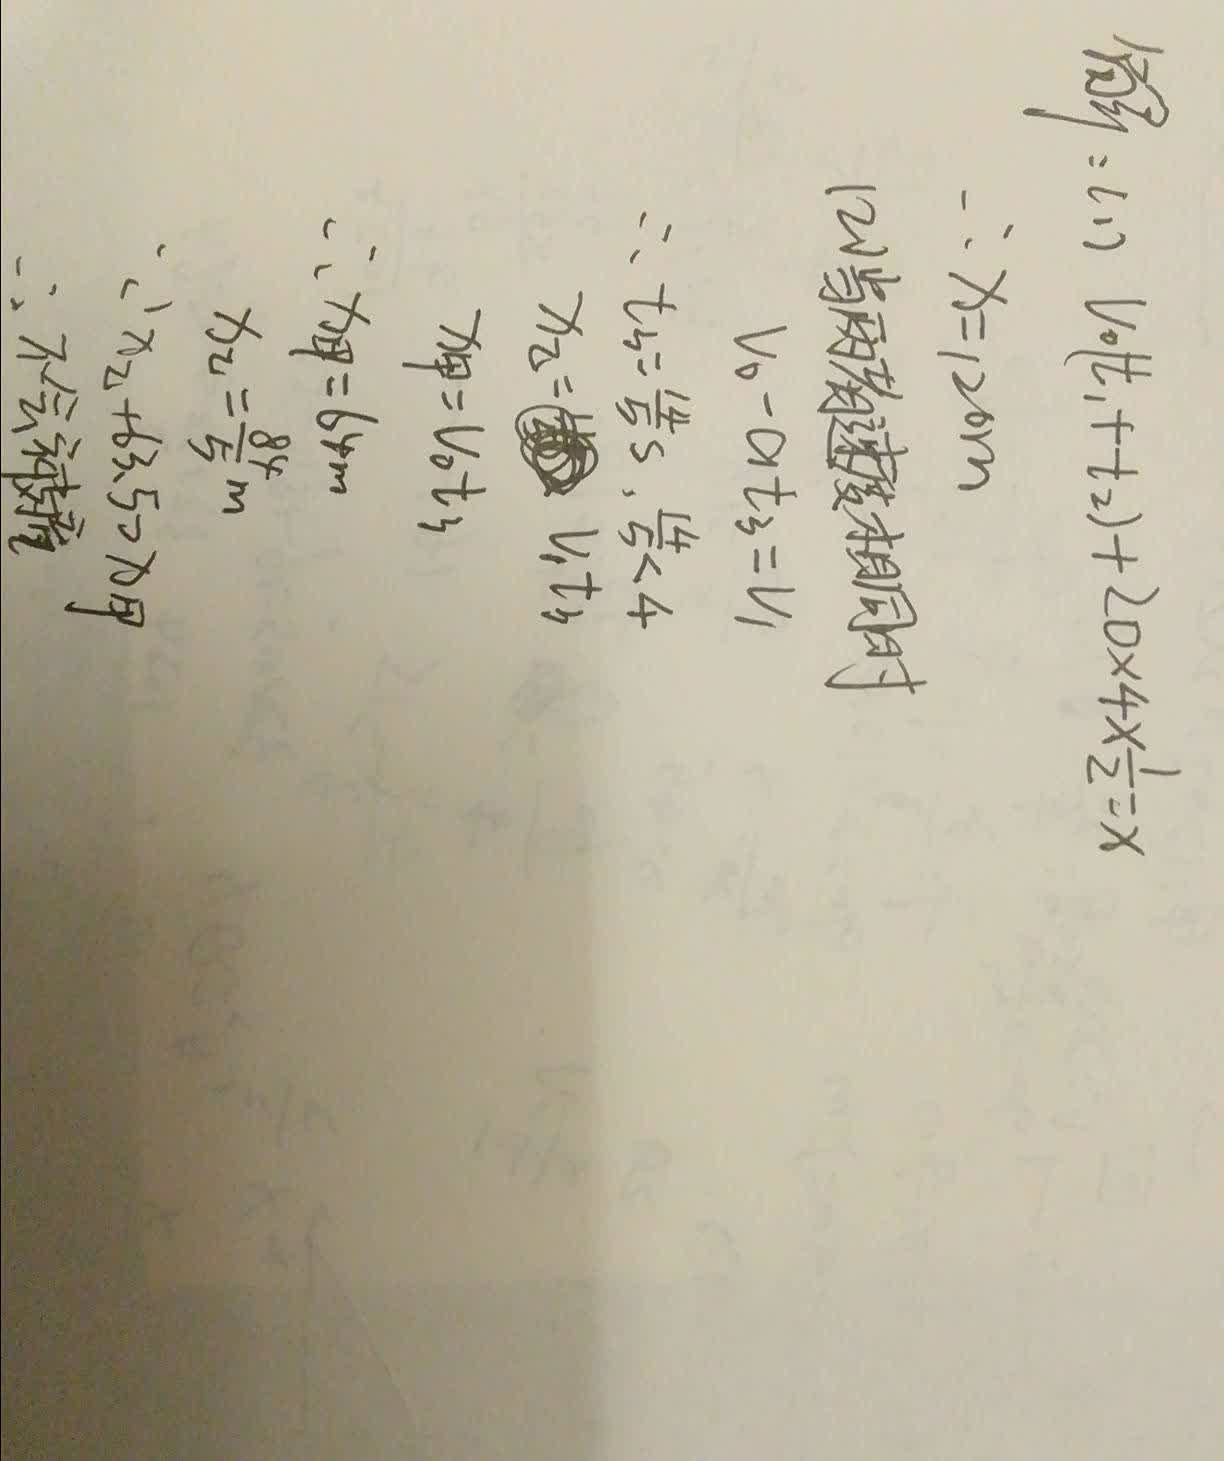 解: (1) V₀(t₁+t₂)+20×4×1/2=x
∴ x=120m
(2)当两者速度相同时
V₀-at₃=V₁
∴ t₃=14/5 s, 14/5<4
x乙= V₁t₃
x甲=V₀t₃
∴ x甲=64m
x乙=84/5 m
∵ x乙+63.5>x甲
∴ 不会被撞